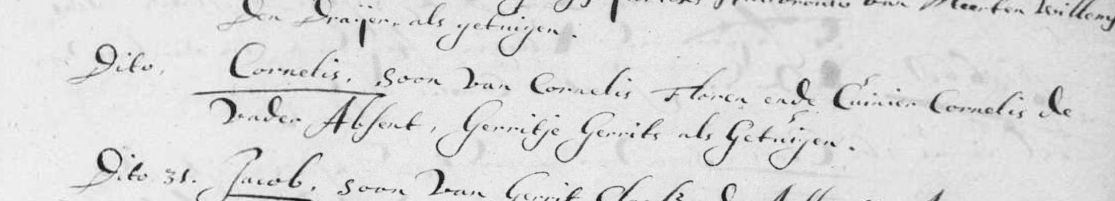 huisvrouw van Maerten Willems
Den Draijer, als getuijgen.
Dito, Cornelis, soon van Cornelis Floren ende Cuinier Cornelis de
Vader Absent, Gerritje Gerrits als Getuijgen.
Dito 31. Jacob, soon van Gerrit